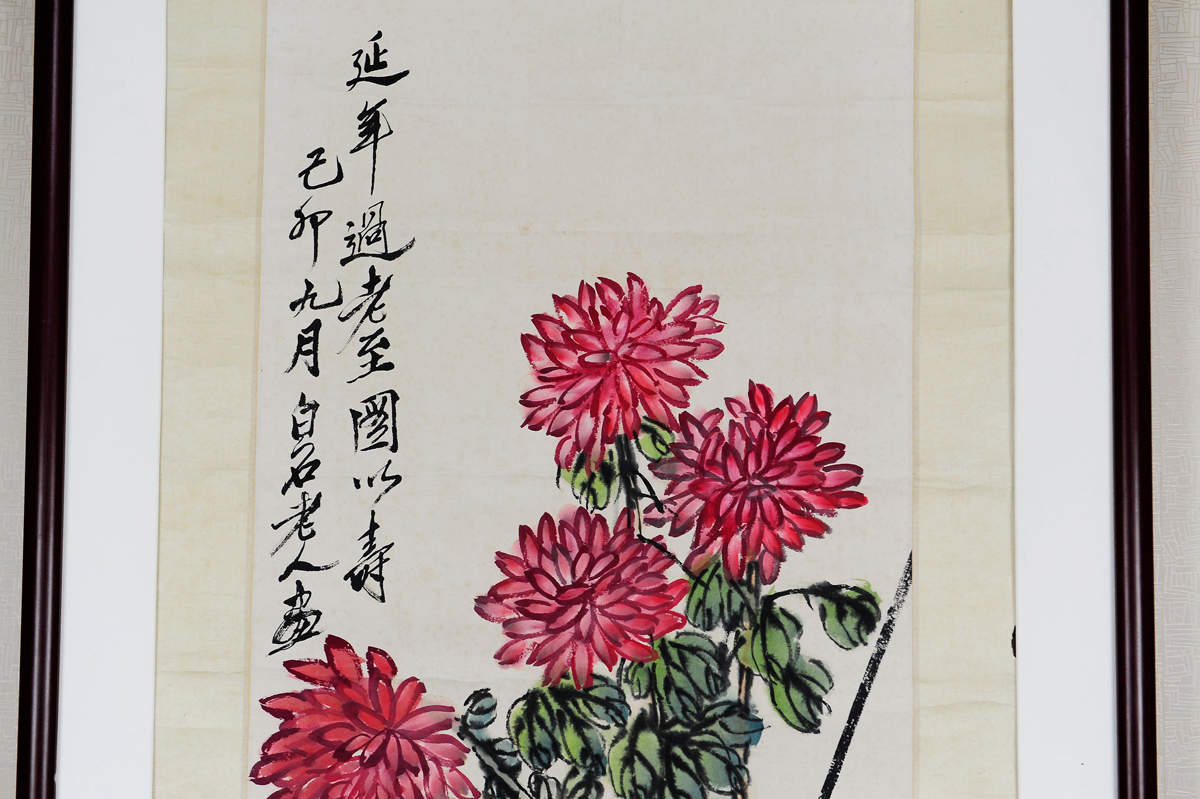 延年過老至圖以壽
己卯九月白石老人畫